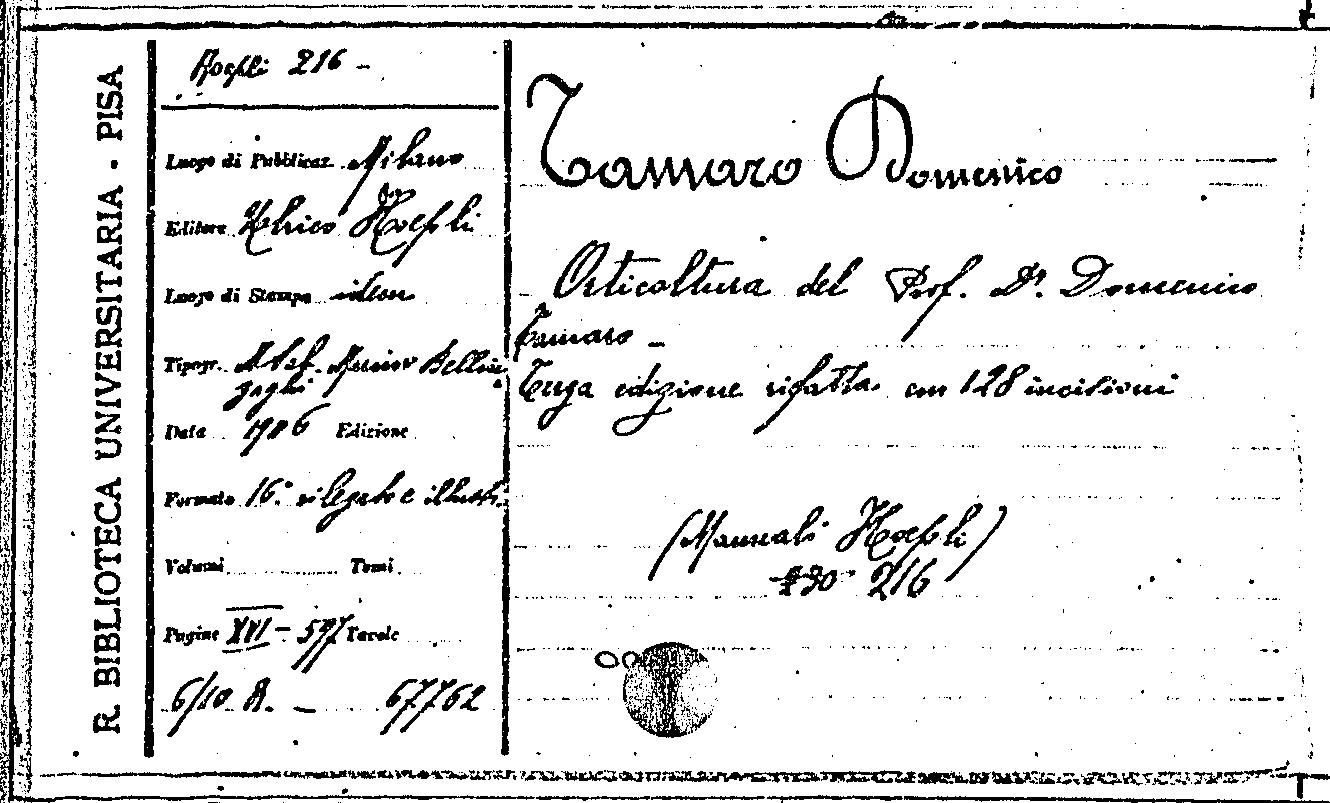 R. BIBLIOTECA UNIVERSITARIA - PISA
Hoepli 216 -
Luogo di Pubblicaz. Milano
Editore Ulrico Hoepli
Luogo di Stampa idem
Tipogr. Stab. Menino Bellin
zaghi
Data 1906 Edizione
Formato 16° rilegato e illustr.
Volumi Tomi
Pagine XVI - 597 Tavole
6/10 A. - 67762
Tamaro Domenico
Orticoltura del Prof. Dr. Domenico
Tamaro -
Terza edizione rifatta con 128 incisioni
(Manuali Hoepli)
216